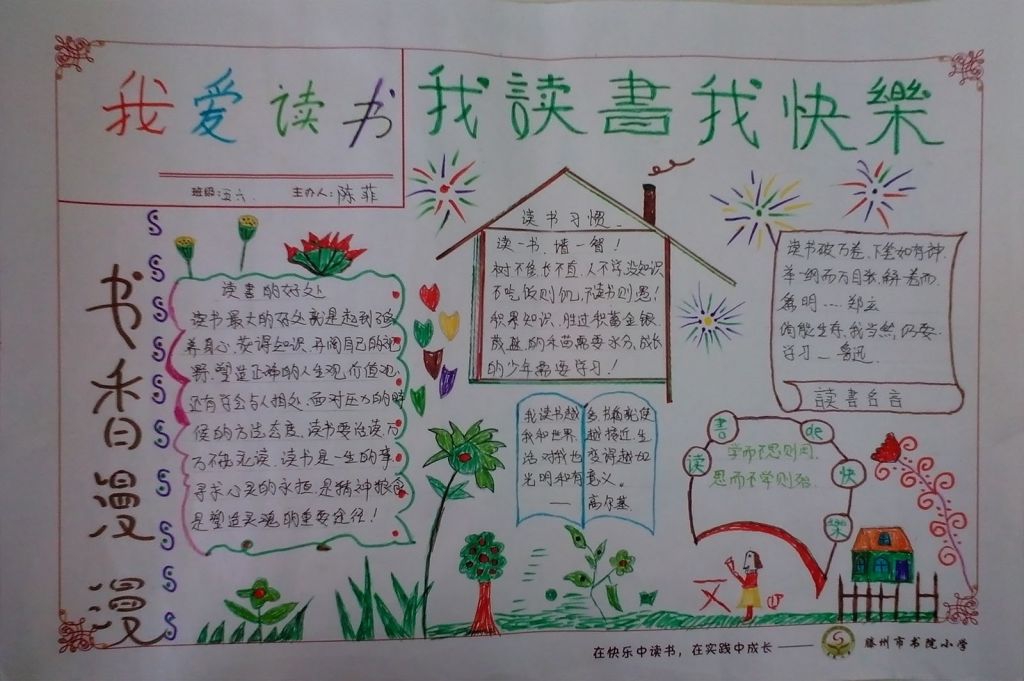 我爱读书
我読書我快樂
班级:五六.
主办人:陈菲
书香漫漫
读書的好处
读书最大的好处就是起到了修
养身心,获得知识,开阔自己的视
野,塑造正确的人生观,价值观.
还有学会与人相处,面对压力的时
侯的方法态度,读书要泛读,万
万不能死读.读书是一生的事.
寻求心灵的永恒.是精神粮食
是塑造灵魂的重要途径!
读书习惯.
读一书,增一智!
树不修长不直,人不学没知识
不吃饭则饥,不读书则愚!
积累知识,胜过积蓄金银.
茂盛的禾苗需要水分,成长
的少年需要学习!
读书破万卷,下笔如有神.
举一纲而万目张,解一卷而
众篇明....郑玄
倘能生存,我当然仍要
学习—鲁迅.
読書名言
我读书越多书籍就使
我和世界越接近,生
活对我也变得越加
光明和有意义。
——高尔基.
读書de快樂
学而不思则罔.
思而不学则殆.
在快乐中读书，在实践中成长——
滕州市书院小学